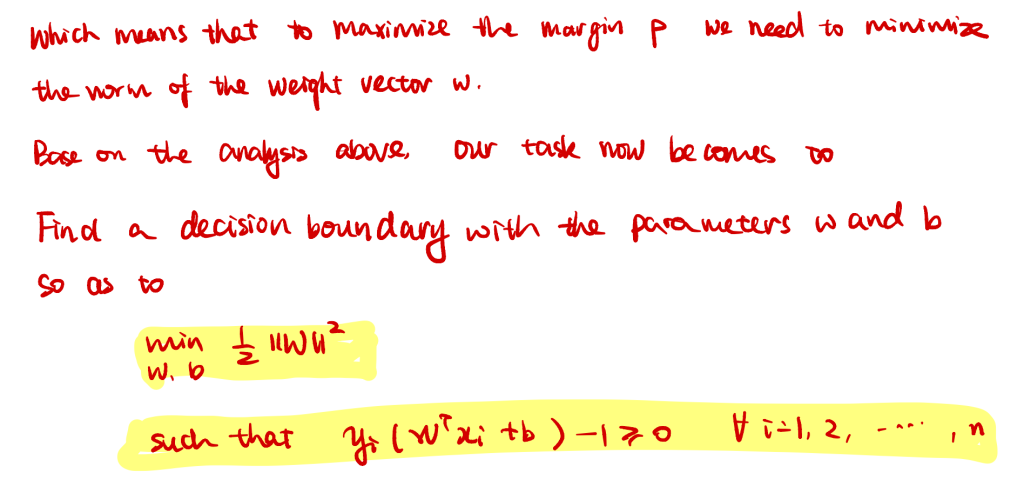 which means that to maximize the margin ρ we need to minimize
the norm of the weight vector w.
Base on the analysis above, our task now becomes to
Find a decision boundary with the parameters w and b
so as to
min 1/2 ||W||²
w, b
such that yᵢ (wᵀxᵢ + b) - 1 ⩾ 0 ∀ i=1, 2, ..... , n